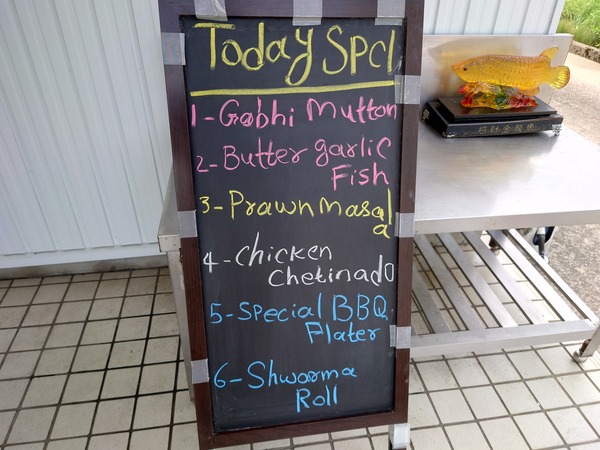 Today Spcl
1-Gobhi Mutton
2-Butter garlic
Fish
3-Prawn masal
a
4-chicken
Chetinado
5-Special BBQ
Plater
6-Shwarma
Roll